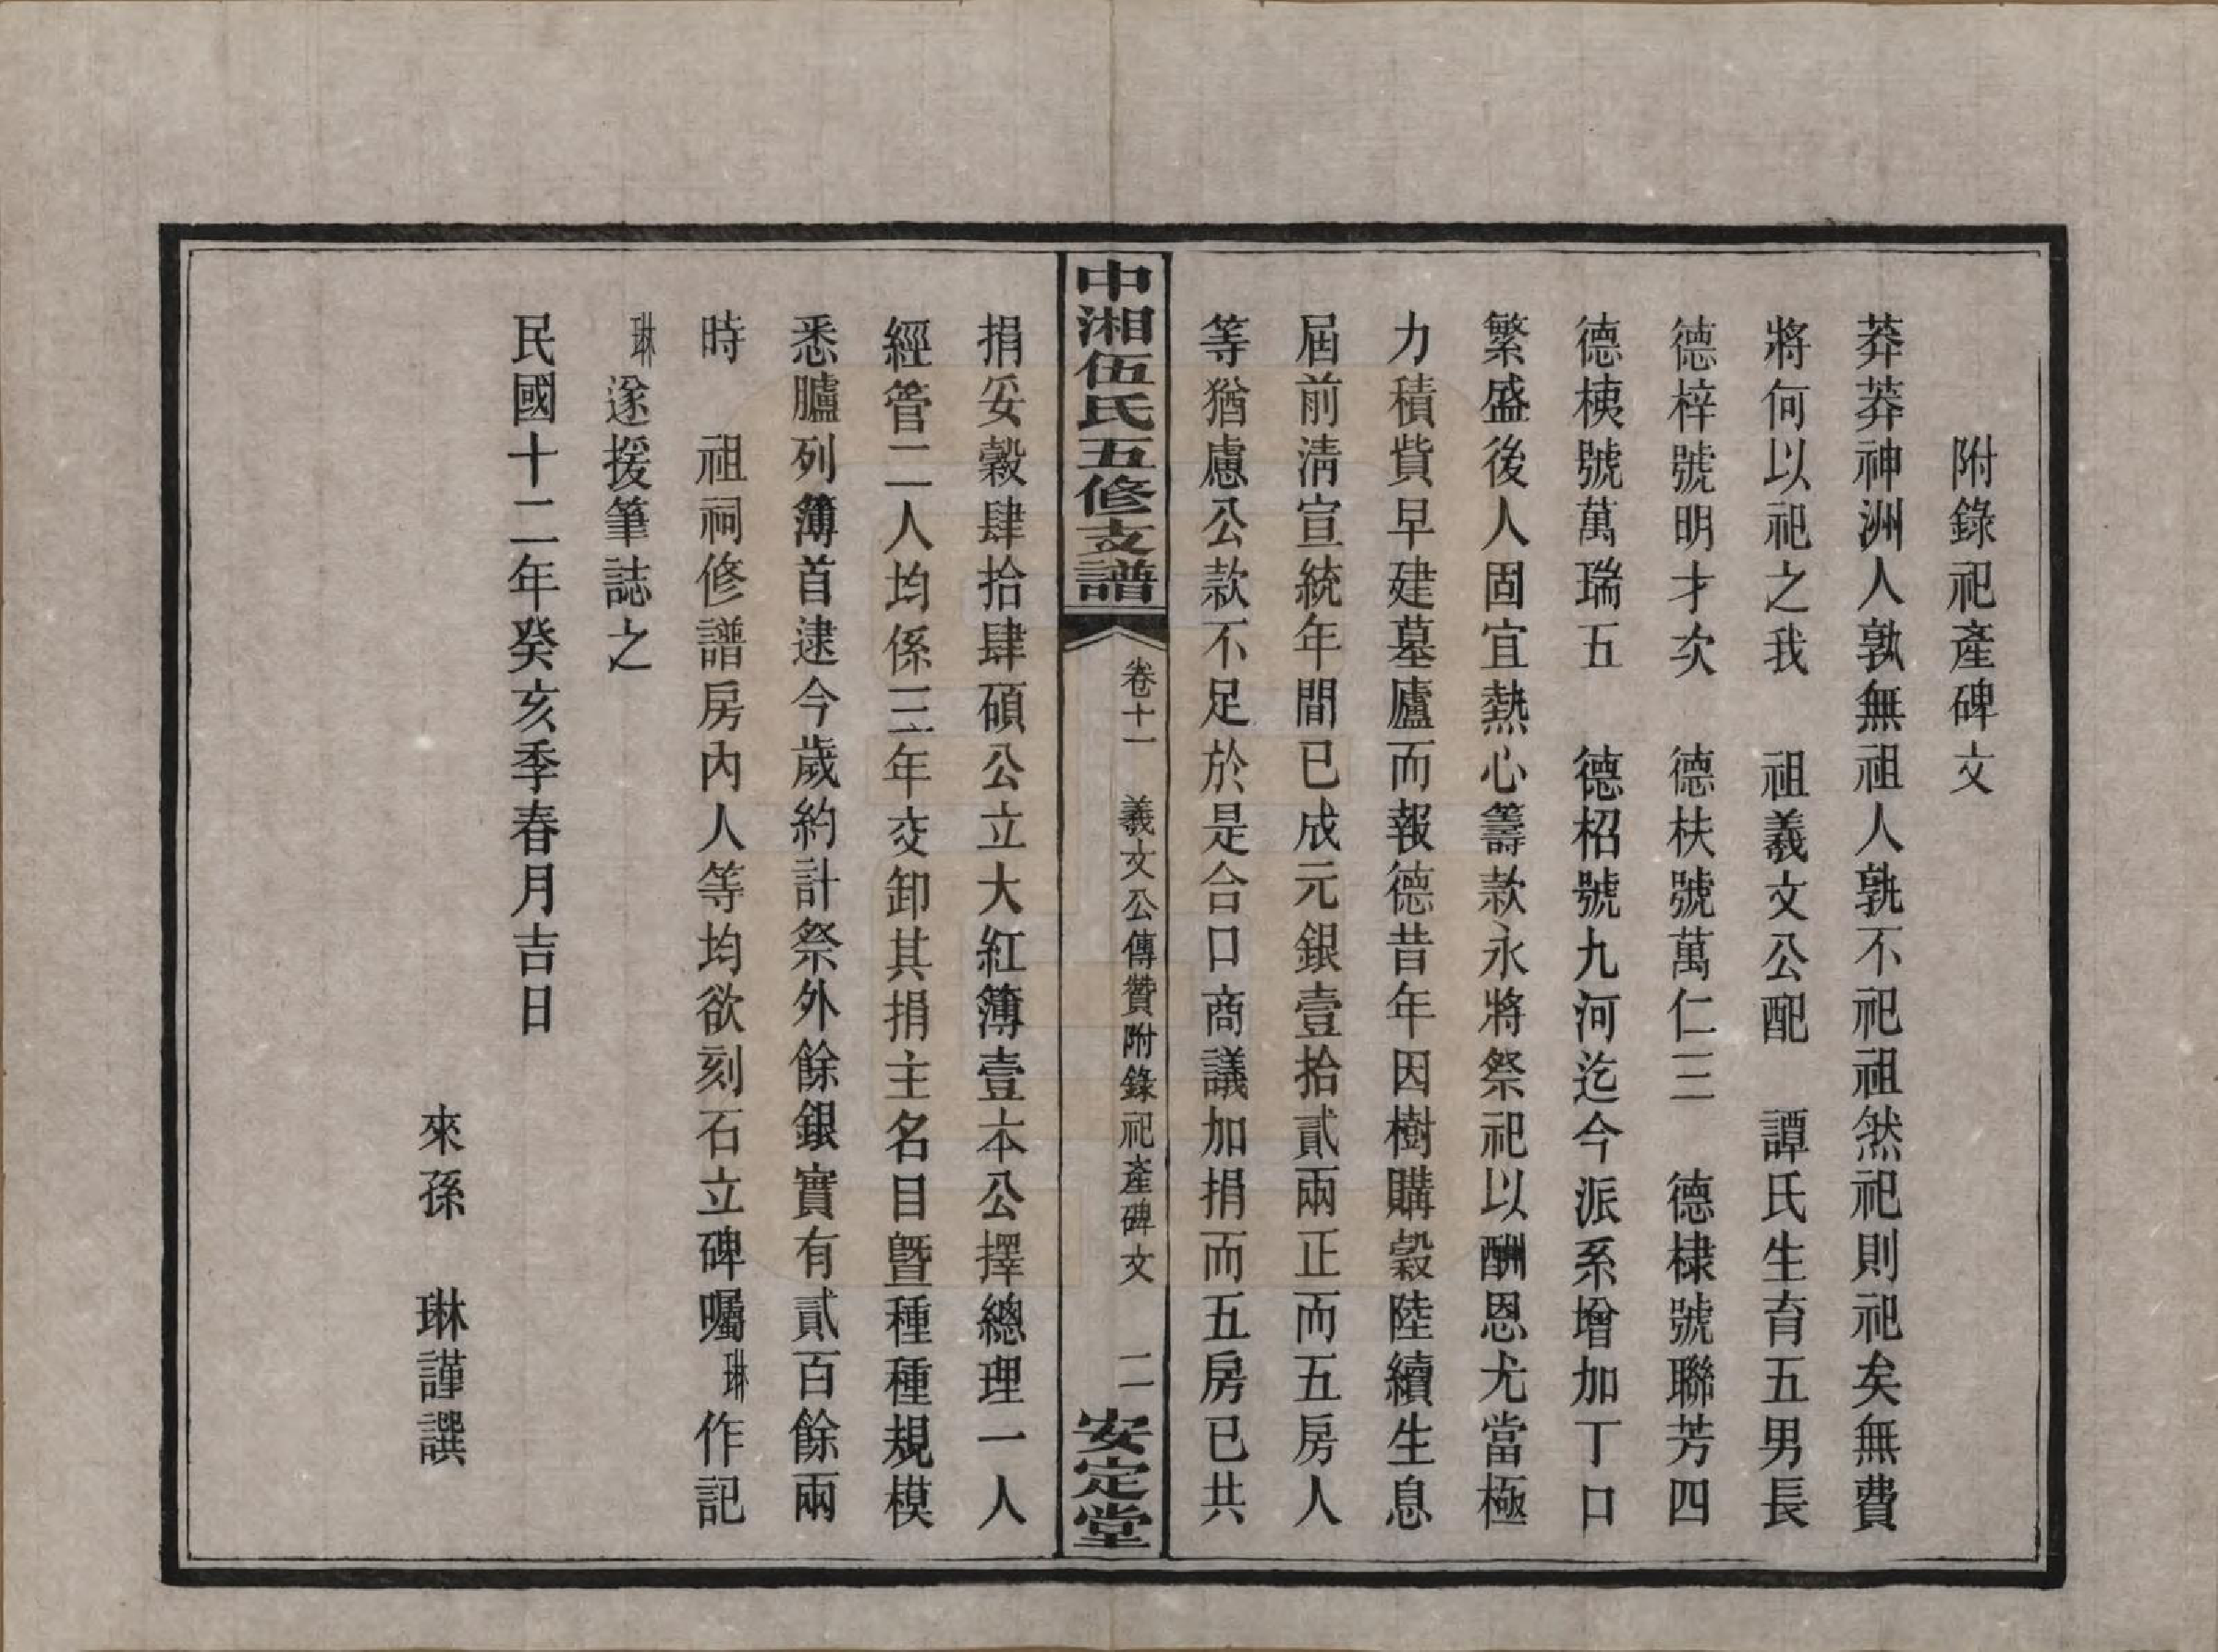 附錄祀產碑文
莽莽神洲人孰無祖人孰不祀祖然祀則祀矣無費
將何以祀之我　祖義文公配　譚氏生育五男長
德梓號明才次　德扶號萬仁三　德棣號聯芳四
德桋號萬瑞五　德柖號九河迄今派系增加丁口
繁盛後人固宜熱心籌款永將祭祀以酬恩尤當極
力積貲早建墓廬而報德昔年因樹購穀陸續生息
屆前清宣統年間已成元銀壹拾貳兩正而五房人
等猶慮公款不足於是合口商議加捐而五房已共
中湘伍氏五修支譜
卷十一　義文公傳贊附錄祀產碑文　二
安定堂
捐妥穀肆拾肆碩公立大紅簿壹本公擇總理一人
經管二人均係三年交卸其捐主名目暨種種規模
悉臚列簿首逮今歲約計祭外餘銀實有貳百餘兩
時　祖祠修譜房內人等均欲刻石立碑囑琳作記
琳遂援筆誌之
民國十二年癸亥季春月吉日
來孫　琳謹譔